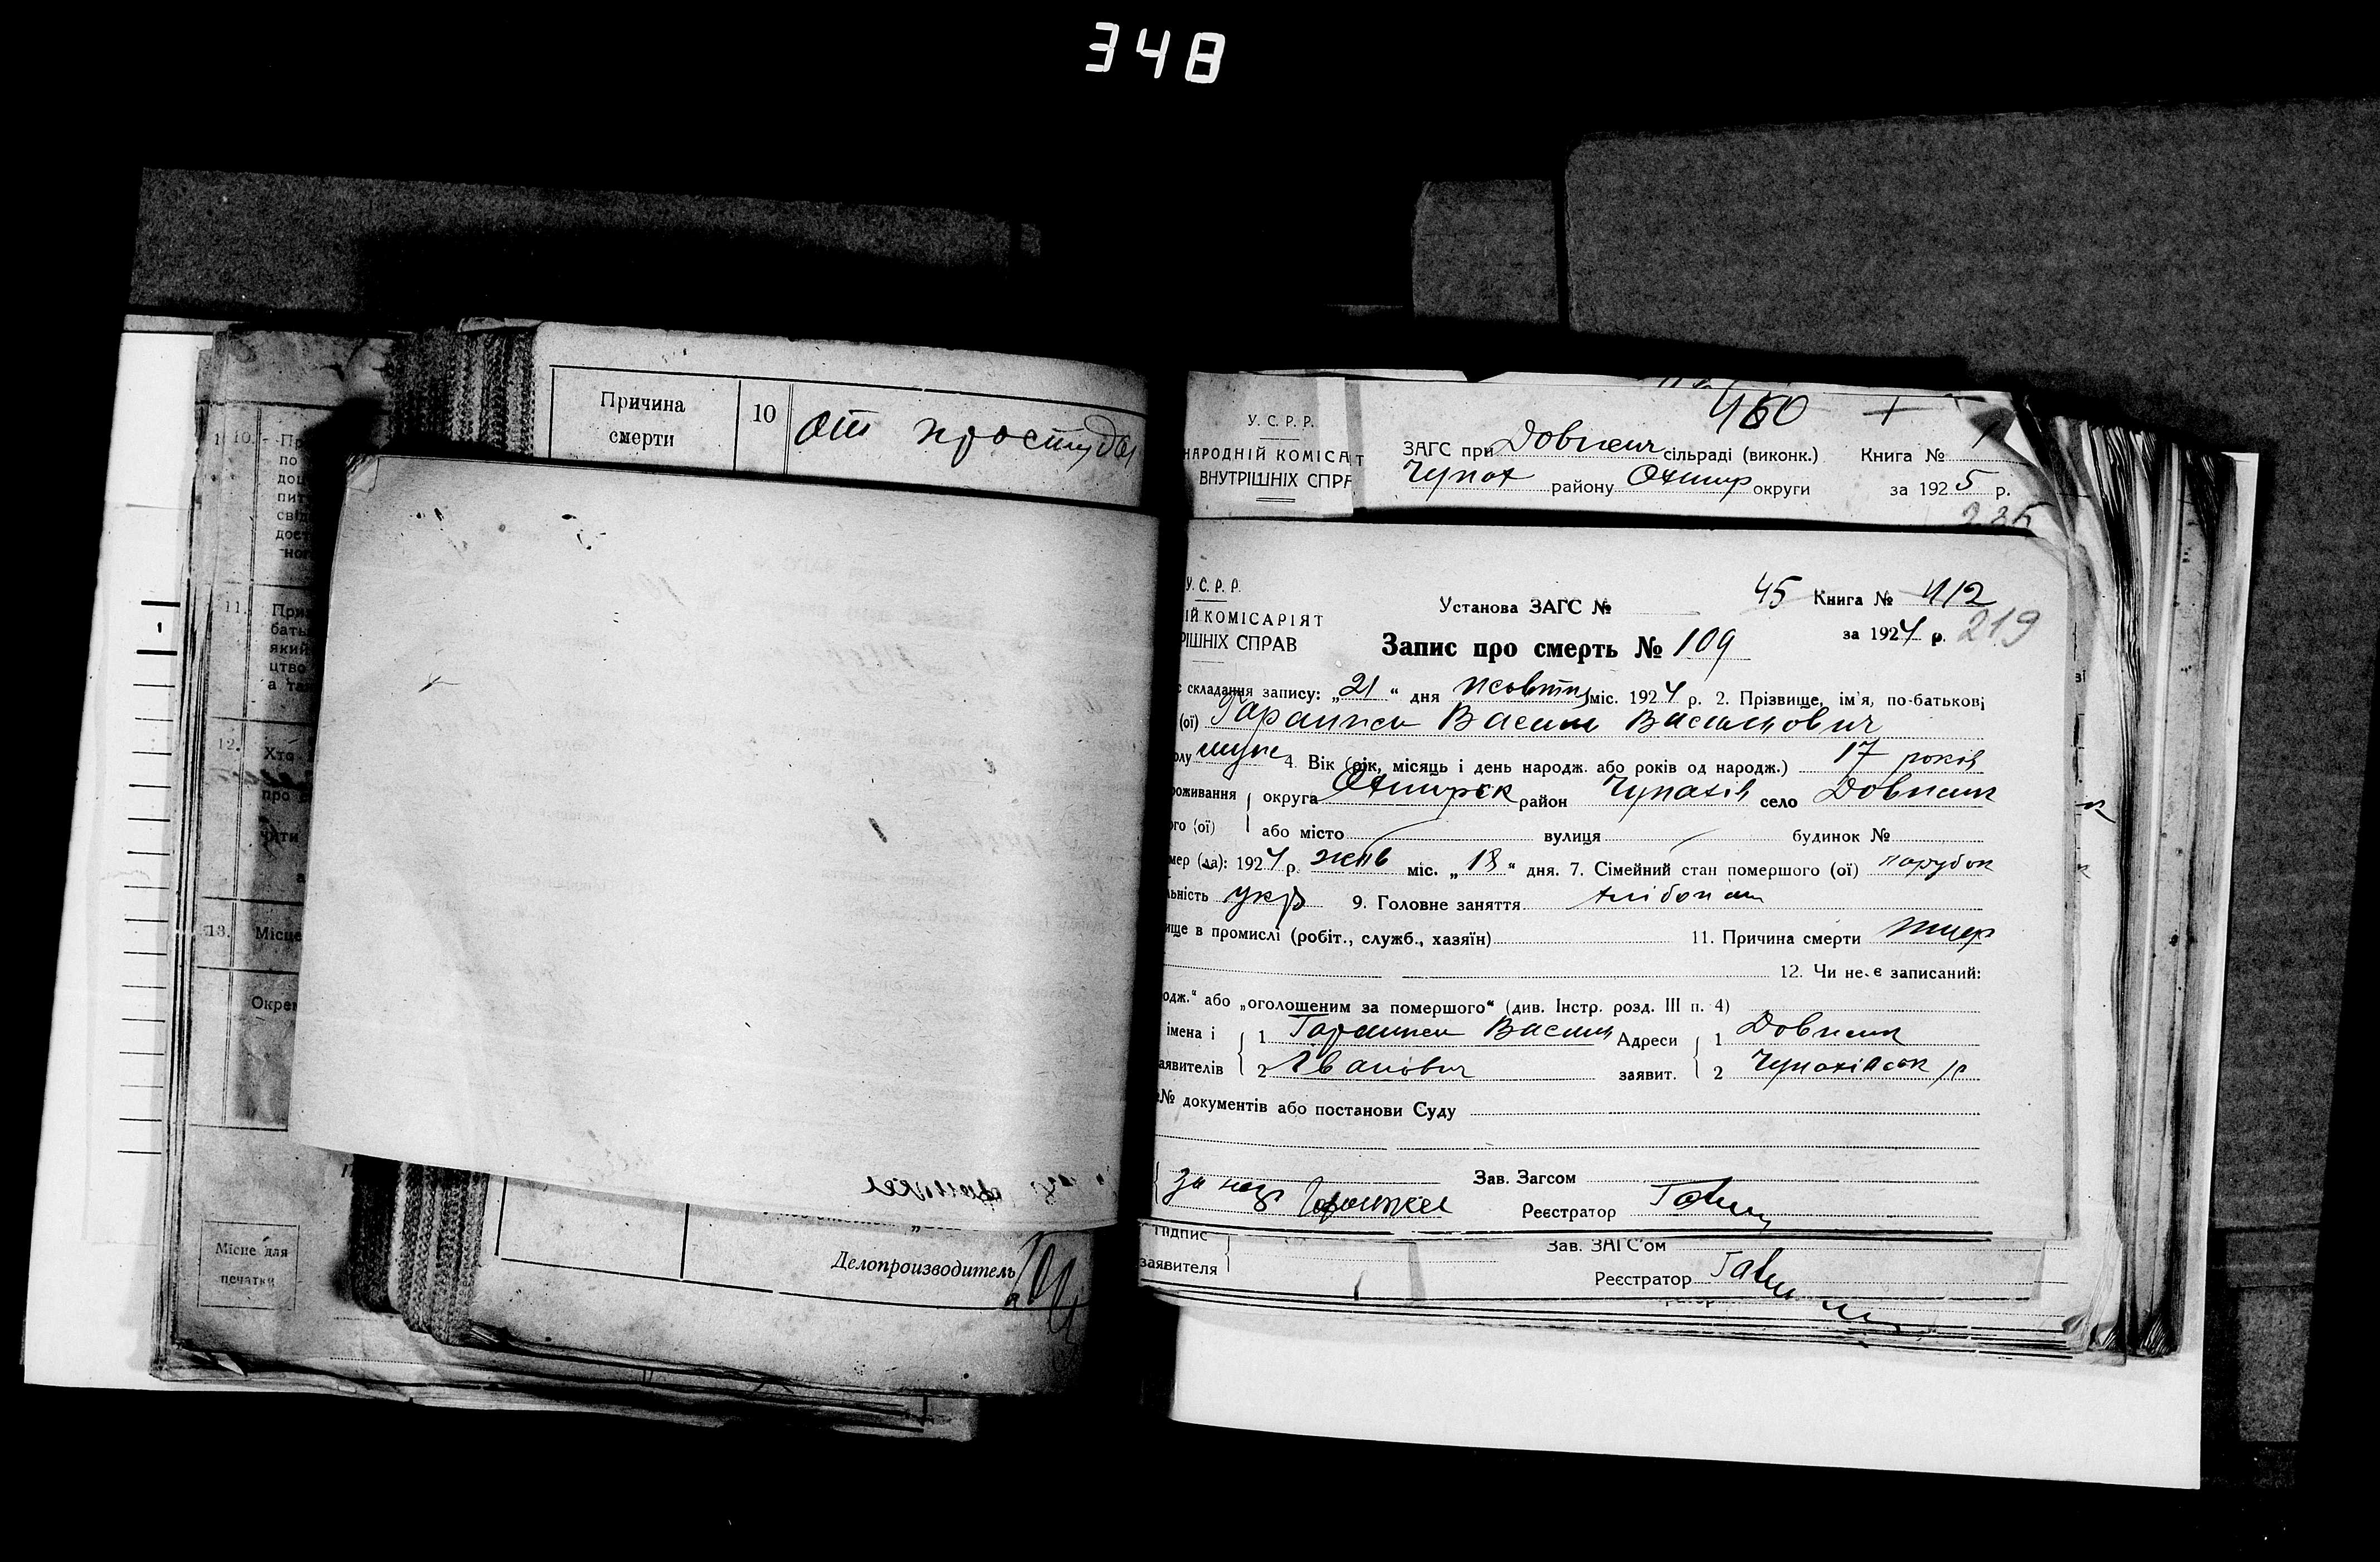 348
1 10. Пр
по
дог
пит
свід
дос
ног
11. При
бать
який
цтво
а та
12. Хто
про
чити
а
13. Місце
Окрем
Місце для
печатки
Причина смерти 10 от простуды
Делопроизводитель
У. С. Р. Р.
НАРОДНІЙ КОМІСАТ
ВНУТРІШНІХ СПР
460 +
ЗАГС при Довжич сільраді (виконк.) Книга № 1
Чупах району Охтир округи за 1925 р.
235
У. С. Р. Р.
ІЙ КОМІСАРІЯТ
РІШНІХ СПРАВ
Установа ЗАГС № 45 Книга № 112
Запис про смерть № 109 за 1924 р. 219
с складання запису: „21“ дня жовтня міс. 1924 р. 2. Прізвище, ім'я, по-батькові
(ої) Василь Васильович
олу муж. 4. Вік (рік, місяць і день народж. або років од народж.) 17 років
роживання округа Охтирськ район Чупахів село Довжик
ого (ої) або місто вулиця будинок №
мер (ла): 1924 р. жов міс. „18“ дня. 7. Сімейний стан помершого (ої) парубок
льність укр 9. Головне заняття хлібопаш
ище в промислі (робіт., служб., хазяїн) 11. Причина смерти
12. Чи не є записаний:
одж.“ або „оголошеним за помершого“ (див. Інстр. розд. III п. 4)
імена і 1 Василь Адреси 1 Довжик
аявителів 2 Іванович заявит. 2 Чупахівськ р
№№ документів або постанови Суду
Зав. Загсом
за нег
Реєстратор
Підпис
заявителя
Зав. ЗАГС'ом
Реєстратор